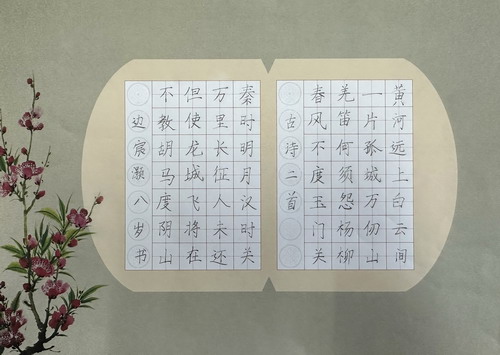 黄河远上白云间
一片孤城万仞山
羌笛何须怨杨柳
春风不度玉门关
古诗二首
秦时明月汉时关
万里长征人未还
但使龙城飞将在
不教胡马度阴山
边宸八岁书